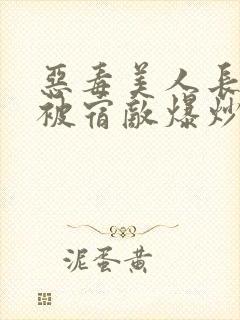 惡毒美人長
被宿敵爆炒
泥蛋黃